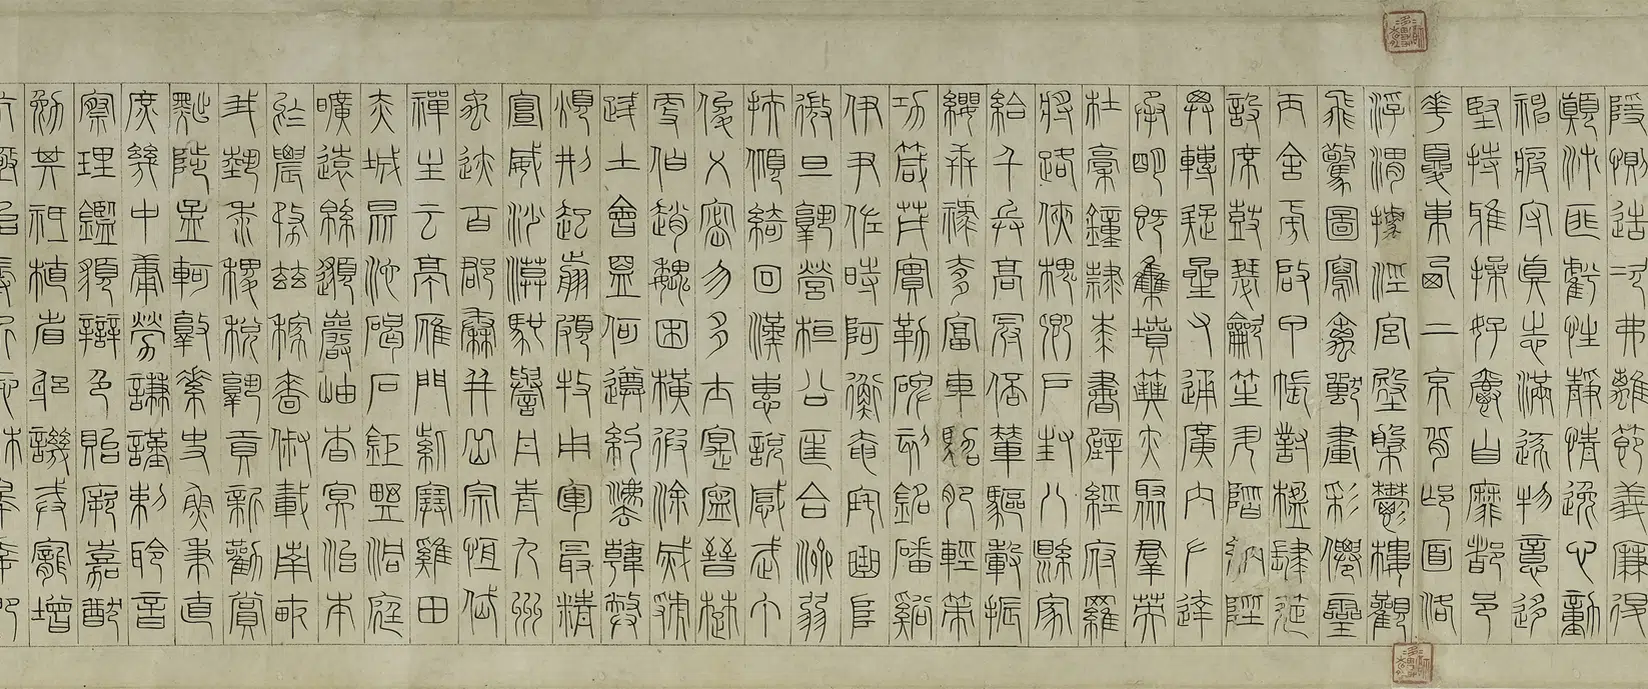 隱惻造次弗離節義廉退
顛沛匪虧性靜情逸心動
神疲守真志滿逐物意移
堅持雅操好爵自縻都邑
華夏東西二京背邙面洛
浮渭據涇宮殿盤鬱樓觀
飛驚圖寫禽獸畫彩僊靈
丙舍傍啟甲帳對楹肆筵
設席鼓瑟吹笙升階納陛
弁轉疑星右通廣內左達
承明既集墳典亦聚群英
杜稾鍾隸漆書壁經府羅
將路俠槐卿戶封八縣家
給千兵高冠陪輦驅轂振
纓世祿侈富車駕肥輕策
功箴茂實勒碑刻銘磻谿
伊尹佐時阿衡奄宅曲阜
微旦孰營桓公匡合濟弱
扶傾綺回漢惠說感武丁
俊乂密勿多士寔寧晉楚
更伯趙魏困橫假涂滅虢
踐土會盟何遵約法韓弊
煩刑起翦頗牧用軍最精
宣威沙漠馳譽丹青九州
禹跡百郡秦并嶽宗恆岱
禪主云亭雁門紫塞雞田
赤城昆池碣石鉅野洞庭
曠遠綿邈巖岫杳冥治本
於農務茲稼穡俶載南畝
我藝黍稷稅孰貢新勸賞
黜陟孟軻敦素史魚秉直
庶幾中庸勞謙謹敕聆音
察理鑑貌辯色貽厥嘉猷
勉其祗植省躬譏誡寵增
抗極殆辱近恥林皋幸即